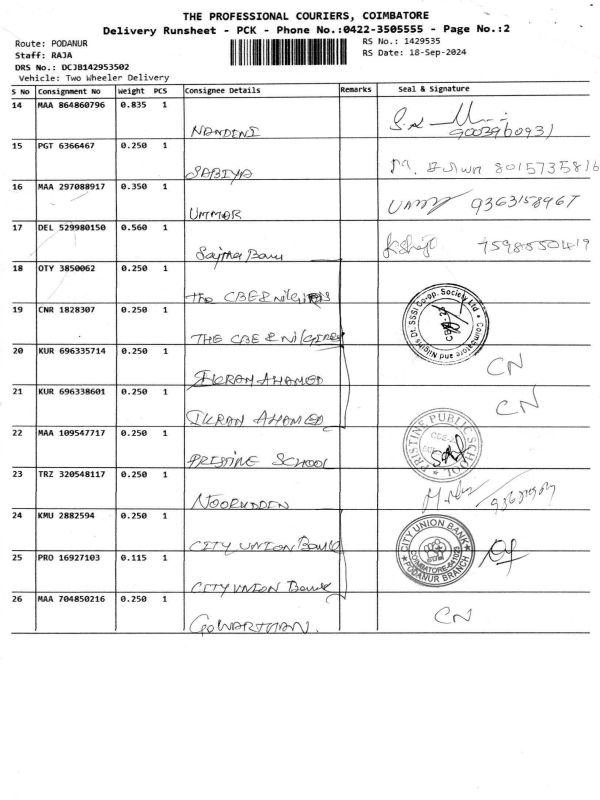 THE PROFESSIONAL COURIERS, COIMBATORE
Delivery Runsheet - PCK - Phone No.:0422-3505555 - Page No.:2
Route: PODANUR RS No.: 1429535
Staff: RAJA RS Date: 18-Sep-2024
DRS No.: DCJB142953502
Vehicle: Two Wheeler Delivery
S No Consignment No Weight PCS Consignee Details Remarks Seal & Signature
14 MAA 864860796 0.835 1
NANDINI 9003960931
15 PGT 6366467 0.250 1
SABIYA 8015735816
16 MAA 297088917 0.350 1
UMMAR 9363158967
17 DEL 529980150 0.560 1
Sajitha Banu 7598550419
18 OTY 3850062 0.250 1
The CBE & NILGIRIS
19 CNR 1828307 0.250 1
THE CBE & NILGIRIS
Coimbatore and Nilgiris Dt. SSSI Co-op. Society Ltd
20 KUR 696335714 0.250 1
IKRAN AHAMED CN
21 KUR 696338601 0.250 1
IKRAN AHAMED CN
22 MAA 109547717 0.250 1
PRISTINE SCHOOL
PRISTINE PUBLIC SCHOOL
23 TRZ 320548117 0.250 1
NOORUDDIN
24 KMU 2882594 0.250 1
CITY UNION Bank
25 PRO 16927103 0.115 1
CITY UNION Bank
CITY UNION BANK
COIMBATORE-641023
PODANUR BRANCH
26 MAA 704850216 0.250 1
GOWARTHAN. CN